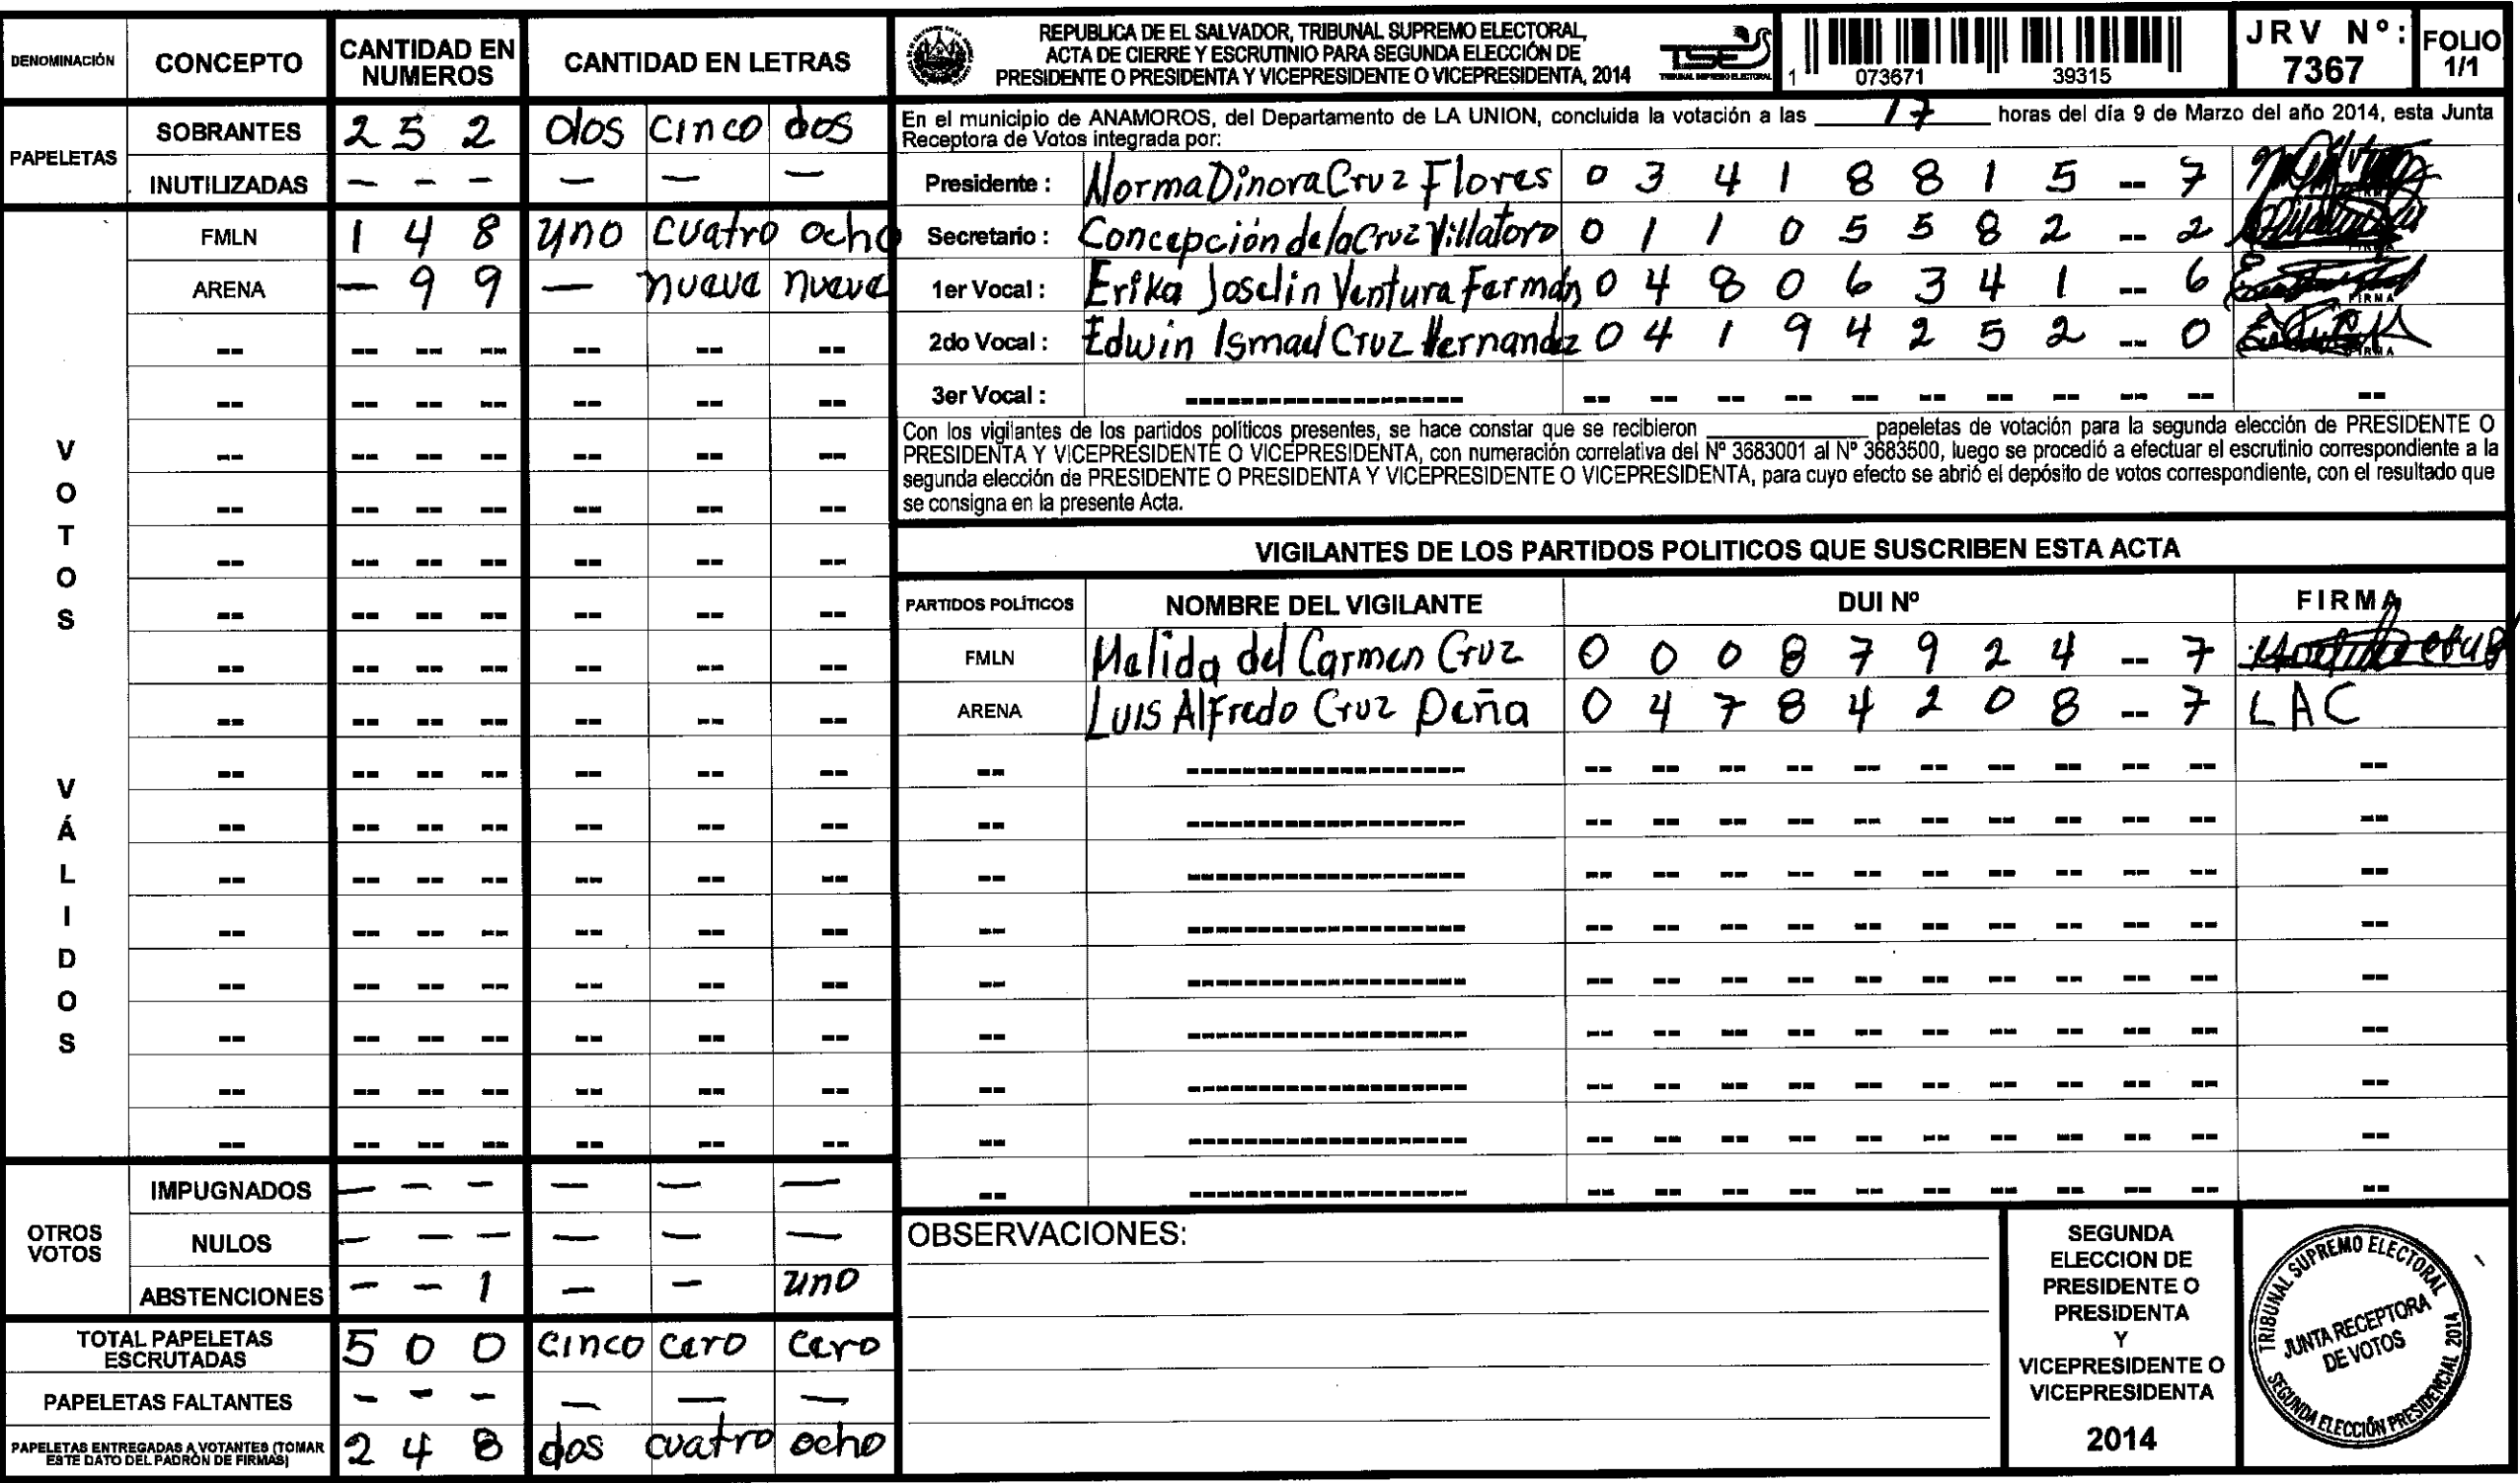 DENOMINACIÓN CONCEPTO CANTIDAD EN NUMEROS CANTIDAD EN LETRAS
PAPELETAS
SOBRANTES 2 5 2 dos cinco dos
INUTILIZADAS - - - - - -
VOTOS VÁLIDOS
FMLN 1 4 8 uno cuatro ocho
ARENA - 9 9 - nueve nueve
OTROS VOTOS
IMPUGNADOS - - - - - -
NULOS - - - - - -
ABSTENCIONES - - 1 - - uno
TOTAL PAPELETAS ESCRUTADAS 5 0 0 cinco cero cero
PAPELETAS FALTANTES - - - - - -
PAPELETAS ENTREGADAS A VOTANTES (TOMAR ESTE DATO DEL PADRÓN DE FIRMAS) 2 4 8 dos cuatro ocho
REPUBLICA DE EL SALVADOR, TRIBUNAL SUPREMO ELECTORAL,
ACTA DE CIERRE Y ESCRUTINIO PARA SEGUNDA ELECCIÓN DE
PRESIDENTE O PRESIDENTA Y VICEPRESIDENTE O VICEPRESIDENTA, 2014
TSE
TRIBUNAL SUPREMO ELECTORAL
1 073671 39315
JRV Nº: 7367
FOLIO 1/1
En el municipio de ANAMOROS, del Departamento de LA UNION, concluida la votación a las 17 horas del día 9 de Marzo del año 2014, esta Junta
Receptora de Votos integrada por:
Presidente : Norma Dinora Cruz Flores 0 3 4 1 8 8 1 5 -- 7
Secretario : Concepción de la Cruz Villatoro 0 1 1 0 5 5 8 2 -- 2
1er Vocal : Erika Joselin Ventura Fermán 0 4 8 0 6 3 4 1 -- 6
FIRMA
2do Vocal : Edwin Ismael Cruz Hernandez 0 4 1 9 4 2 5 2 -- 0
FIRMA
3er Vocal :
Con los vigilantes de los partidos políticos presentes, se hace constar que se recibieron ________ papeletas de votación para la segunda elección de PRESIDENTE O
PRESIDENTA Y VICEPRESIDENTE O VICEPRESIDENTA, con numeración correlativa del Nº 3683001 al Nº 3683500, luego se procedió a efectuar el escrutinio correspondiente a la
segunda elección de PRESIDENTE O PRESIDENTA Y VICEPRESIDENTE O VICEPRESIDENTA, para cuyo efecto se abrió el depósito de votos correspondiente, con el resultado que
se consigna en la presente Acta.
VIGILANTES DE LOS PARTIDOS POLITICOS QUE SUSCRIBEN ESTA ACTA
PARTIDOS POLÍTICOS NOMBRE DEL VIGILANTE DUI Nº FIRMA
FMLN Melida del Carmen Cruz 0 0 0 8 7 9 2 4 -- 7
ARENA Luis Alfredo Cruz Peña 0 4 7 8 4 2 0 8 -- 7 LAC
OBSERVACIONES:
SEGUNDA
ELECCION DE
PRESIDENTE O
PRESIDENTA
Y
VICEPRESIDENTE O
VICEPRESIDENTA
2014
TRIBUNAL SUPREMO ELECTORAL
JUNTA RECEPTORA
DE VOTOS
SEGUNDA ELECCIÓN PRESIDENCIAL 2014